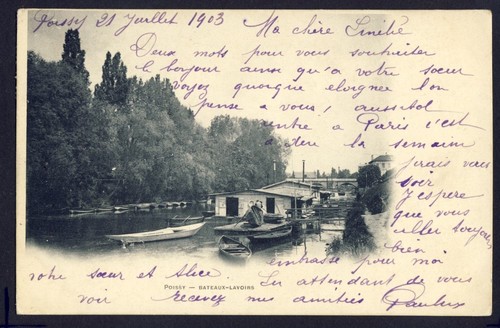 Poissy 21 Juillet 1903
Ma chère
Deux mots pour vous souhaiter
le bonjour ainsi qu'a votre sœur
Voyez quoique eloignée l'on
pense a vous! aussitot
entre a Paris c'est
a dire la semaine
j'irais vous
voir
J'espère
que vous
aller toujours
bien
embrasse pour moi
votre sœur et Alice
En attendant de vous
voir recevez mes amitiés
POISSY — BATEAUX-LAVOIRS